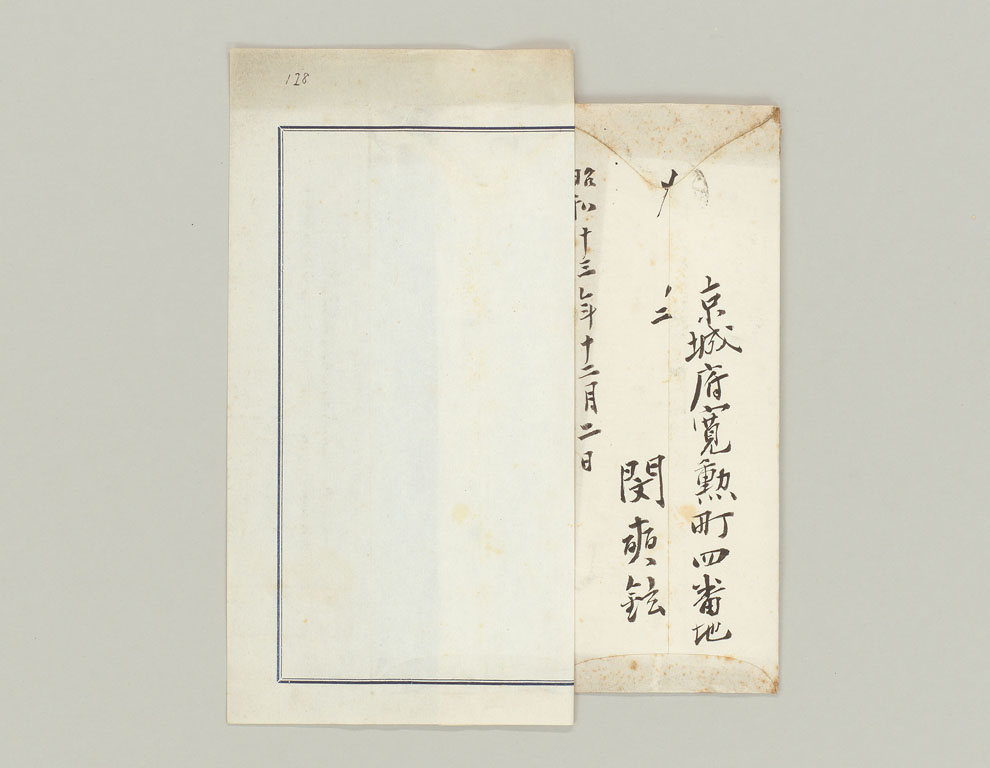 128
京城府寬勲町四番地
閔
鉉
昭和十三年十二月二日